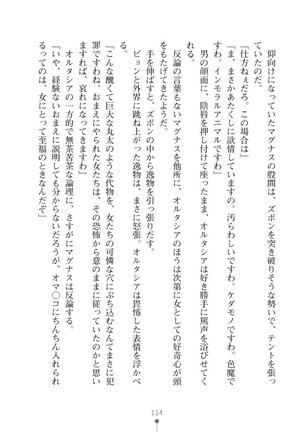 仰向けになっていたマグナスの股間は、ズボンを突き破りそうな勢いで、テントを張っ
「仕方ねぇだろ。この場合は」
「ま、まさかあたくしに欲情していますの。汚らわしいですわ。ケダモノですわ。色魔で
すわ。インモラルアニマルですわ」
男の顔面に、陰唇を押し付けて座ったまま、オルタシアは好き勝手に罵声を浴びせてく
る。
反論の言葉もないマグナスを他所に、オルタシアのほうは次第に女としての好奇心が頭
をもたげてきたようだ。
手を伸ばすと、ズボンの中から逸物を引っ張りだす。
ビョンと外界に跳ね上がった逸物は、まさに怒張。オルタシアは畏怖した表情を浮かべ
「こんな醜くて巨大な丸太のような代物を、女たちの可憐な穴にぶち込むなんてまさに犯
罪ですわね。おまえにやられた女たちは、その恐怖から意のままに従っていたのかと思い
ますれば、哀れになってきますわ」
オルタシアの一方的で無茶苦茶な論理に、さすがにマグナスは反論する。
「いや、経験ないおまえに説明しても分からないだろうが、オマ〇コにちんちん入れられ
るってのは、女にとって至福のときなんだぞ」
114